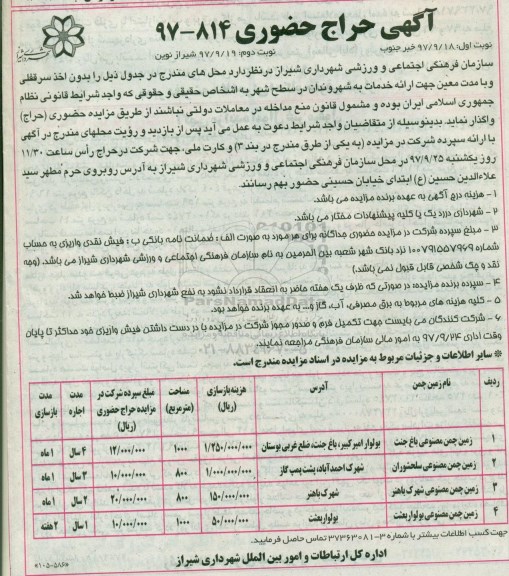 آگهی حراج حضوری ۸۱۴-۹۷
نوبت اول: ۹۷/۹/۱۸ خبر جنوب
نوبت دوم: ۹۷/۹/۱۹ شیراز نوین
سازمان فرهنگی اجتماعی و ورزشی شهرداری شیراز در نظر دارد محل های مندرج در جدول ذیل را بدون اخذ سرقفلی
و با مدت معین جهت ارائه خدمات به شهروندان در سطح شهر به اشخاص حقیقی و حقوقی که واجد شرایط قانونی نظام
جمهوری اسلامی ایران بوده و مشمول قانون منع مداخله در معاملات دولتی نباشند از طریق مزایده حضوری (حراج)
واگذار نماید. بدینوسیله از متقاضیان واجد شرایط دعوت به عمل می آید پس از بازدید و رؤیت محلهای مندرج در آگهی
با ارائه سپرده شرکت در مزایده (به یکی از طرق مندرج در بند ۳) و کارت ملی، جهت شرکت در حراج رأس ساعت ۱۱/۳۰
روز یکشنبه ۹۷/۹/۲۵ در محل سازمان فرهنگی اجتماعی و ورزشی شهرداری شیراز به آدرس روبروی حرم مطهر سید
علاءالدین حسین (ع) ابتدای خیابان حسینی حضور بهم رسانند.
۱- هزینه درج آگهی به عهده برنده مزایده می باشد.
۲- شهرداری در رد یک یا کلیه پیشنهادات مختار می باشد.
۳- مبلغ سپرده شرکت در مزایده حضوری جداگانه برای هر مورد به صورت الف: ضمانت نامه بانکی ب: فیش نقدی واریزی به حساب
شماره ۱۰۰۷۹۱۵۵۷۹۶۹ نزد بانک شهر شعبه بین الحرمین به نام سازمان فرهنگی اجتماعی و ورزشی شهرداری شیراز می باشد. (وجه
نقد و چک شخصی قابل قبول نمی باشد)
۴- سپرده برنده مزایده، در صورتی که ظرف یک هفته حاضر به انعقاد قرارداد نشود به نفع شهرداری شیراز ضبط خواهد شد.
۵- کلیه هزینه های مربوط به برق مصرفی، آب، گاز و... به عهده برنده خواهد بود.
۶- شرکت کنندگان می بایست جهت تکمیل فرم و صدور مجوز شرکت در مزایده با در دست داشتن فیش واریزی خود حداکثر تا پایان
وقت اداری ۹۷/۹/۲۴ به امور مالی سازمان فرهنگی مراجعه نمایند.
* سایر اطلاعات و جزئیات مربوط به مزایده در اسناد مزایده مندرج است.
ردیف نام زمین چمن آدرس هزینه بازسازی (ریال) مساحت (مترمربع) مبلغ سپرده شرکت در مزایده حراج حضوری (ریال) مدت اجاره مدت بازسازی
۱ زمین چمن مصنوعی باغ جنت بولوار امیرکبیر، باغ جنت، ضلع غربی بوستان ۱/۲۵۰/۰۰۰/۰۰۰ ۱۰۰۰ ۱۲/۰۰۰/۰۰۰ ۴ سال ۱ ماه
۲ زمین چمن مصنوعی سلحشوران شهرک احمدآباد، پشت پمپ گاز ۱/۰۰۰/۰۰۰/۰۰۰ ۸۰۰ ۱۰/۰۰۰/۰۰۰ ۳ سال ۱ ماه
۳ زمین چمن مصنوعی شهرک باهنر شهرک باهنر ۱۵۰/۰۰۰/۰۰۰ ۸۰۰ ۲۰/۰۰۰/۰۰۰ ۲ سال ۱ ماه
۴ زمین چمن مصنوعی بولوار بعثت بولوار بعثت ۵۰/۰۰۰/۰۰۰ ۱۰۰۰ ۱۰/۰۰۰/۰۰۰ ۱ سال ۲ هفته
جهت کسب اطلاعات بیشتر با شماره ۳-۳۷۳۶۳۰۸۱ تماس حاصل فرمایید.
اداره کل ارتباطات و امور بین الملل شهرداری شیراز